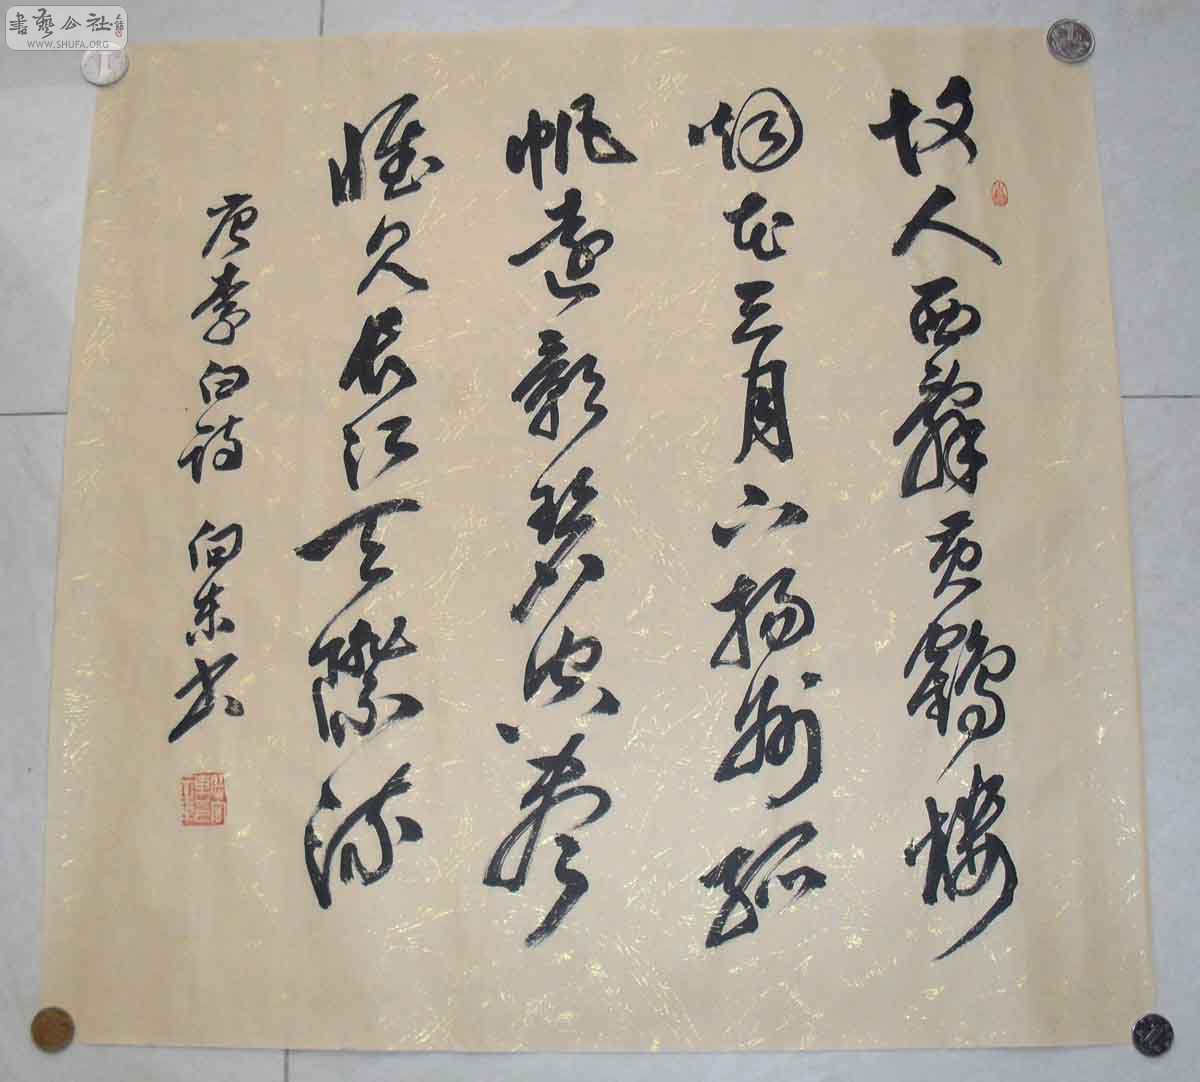 書藝公社
WWW.SHUFA.ORG
故人西辭黄鶴樓
烟花三月下揚州孤
帆遠影碧空盡
惟見長江天際流
唐李白詩 向東書